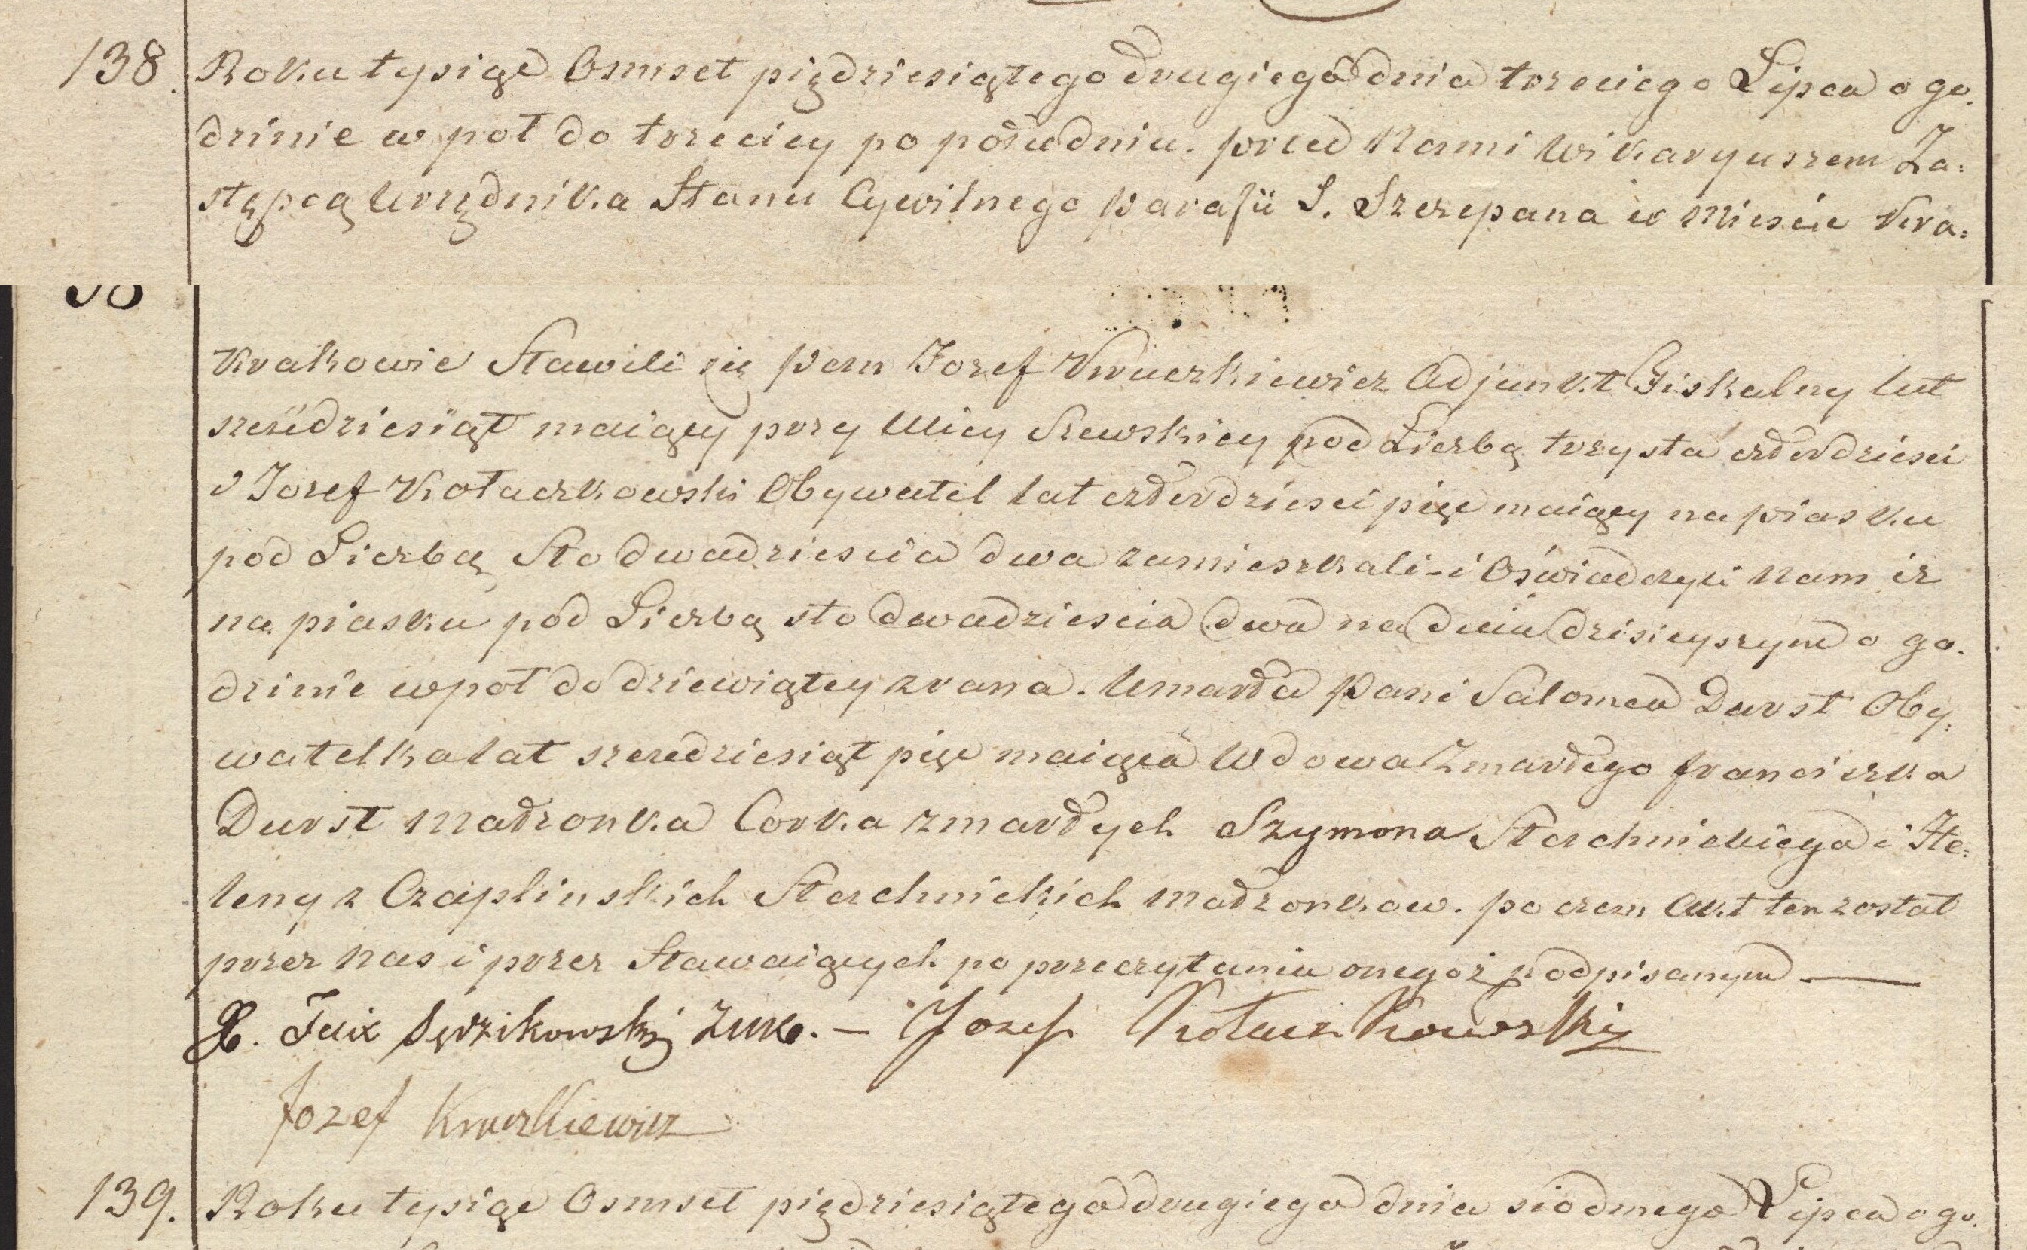 138. Roku tysiąc Osmset piędziesiątego drugiego dnia trzeciego Lipca o go.
dzinie w poł do trzeciey po południu. przed Nami Wikaryuszem Za:
stępcą Urzędnika Stanu Cywilnego Parafii S. Szczepana w Mieście Kra:
Krakowie Stawili się Pan Jozef Kruczkiewicz Adjunkt Fiskalny lat
sześćdziesiąt maiący przy Ulicy Szewskiey pod Liczbą trzysta czterdzieści
i Jozef Kołaczkowski Obywatel lat czterdzieści pięć maiący na piasku
pod Liczbą Sto dwadzieścia dwa zamieszkali i Oświadczyli Nam iż
na piasku pod Liczbą sto dwadzieścia dwa na dniu dzisieyszym o go.
dzinie wpoł do dziewiątey zrana. Umarła Pani Salomea Durst Oby:
watelka lat sześcdziesiąt pięć maiąca Wdowa Zmarłego franciszka
Durst Małżonka Corka zmarłych Szymona Stachnickiego i He:
leny z Czaplinskich Stachnickich Małżonkow. po czem Akt ten został
przez Nas i przez Stawaiących po przeczytaniu onegoż podpisanym —
X. Felix Zuko. – Jozef Kołaczkowski
Jozef Kruczkiewicz
139. Roku tysiąc Osmset piędziesiątego drugiego dnia siodmego Lipca o go.